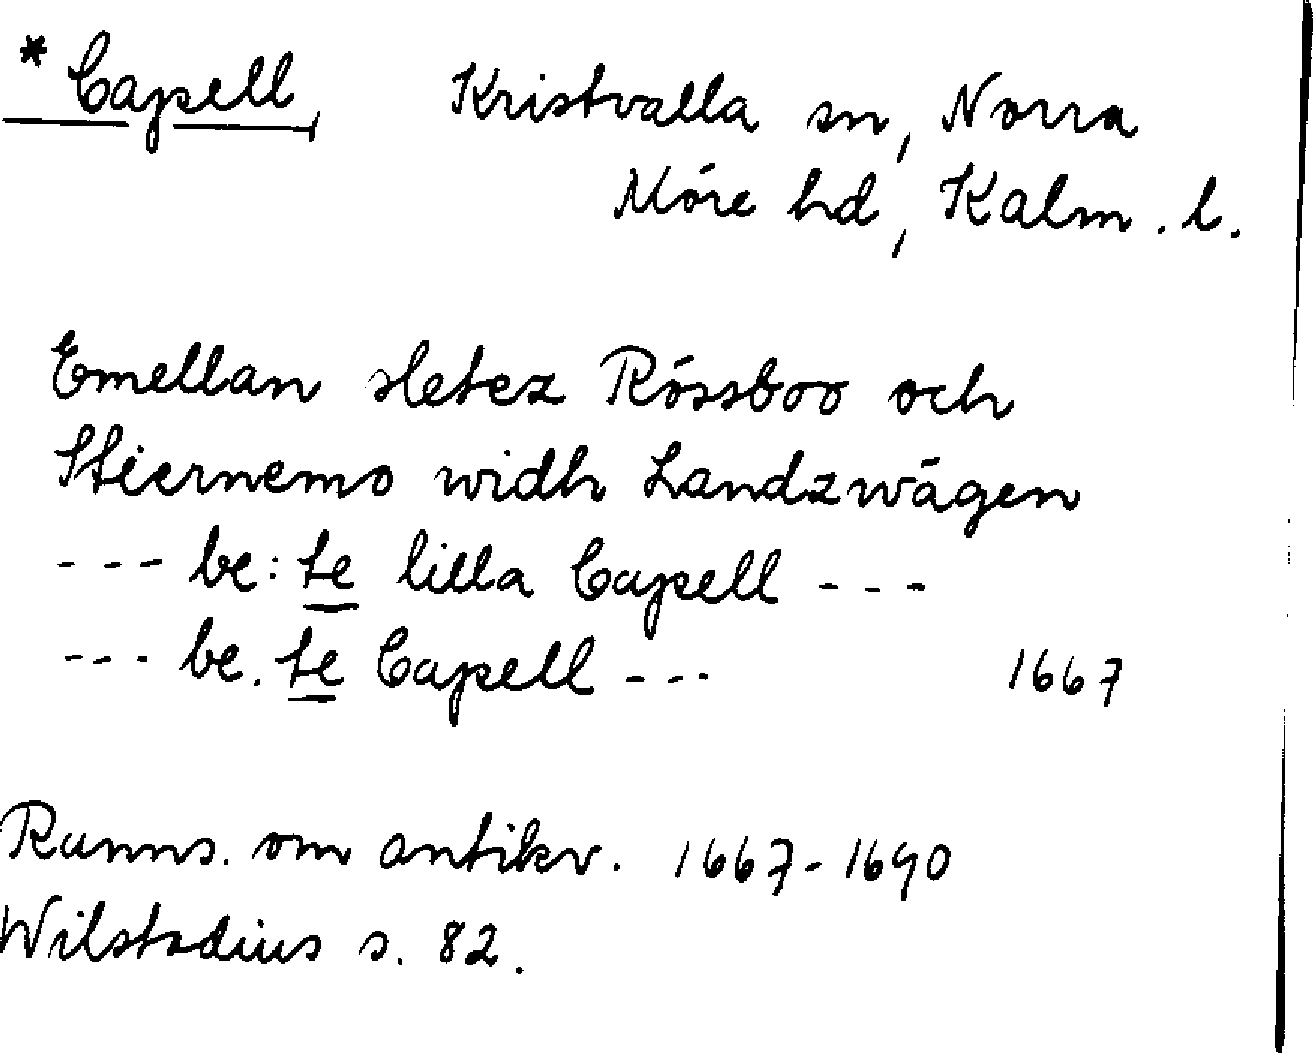 * Capell, Kristvalla sn, Norra
Móre hd, Kalm. l.
Emellan sletez Róssboo och
Stiernemo widh Landzwágen
--- be: te lilla Capell ---
--- be. te Capell --- 1667
Ranns. om antikv. 1667-1690
Wilstadius s. 82.